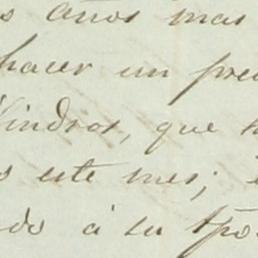 s años mas
hacer un pre
Vindros, que h
s este mes;
do á su Spo